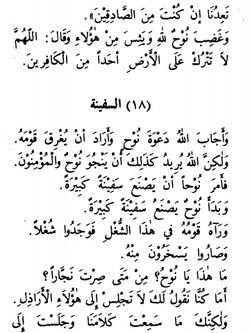 تَعِدُنَا إِنْ كُنْتَ مِنَ الصَّادِقِيْنَ».
وَغَضِبَ نُوْحٌ لِلّٰهِ وَيَئِسَ مِنْ هٰؤُلَاءِ وَقَالَ: اللّٰهُمَّ
لَا تَتْرُكْ عَلَى الْأَرْضِ أَحَداً مِنَ الْكَافِرِيْنَ.
(١٨) السفينة
وَأَجَابَ اللّٰهُ دَعْوَةَ نُوْحٍ وَأَرَادَ أَنْ يُغْرِقَ قَوْمَهُ.
وَلٰكِنَّ اللّٰهَ يُرِيدُ كَذٰلِكَ أَنْ يَنْجُوَ نُوْحٌ وَالْمُؤْمِنُوْنَ.
فَأَمَرَ نُوْحاً أَنْ يَصْنَعَ سَفِيْنَةً كَبِيْرَةً.
وَبَدَأَ نُوْحٌ يَصْنَعُ سَفِيْنَةً كَبِيْرَةً.
وَرَآهُ قَوْمُهُ فِي هٰذَا الشُّغْلِ فَوَجَدُوا شُغْلاً.
وَصَارُوا يَسْخَرُوْنَ مِنْهُ.
مَا هٰذَا يَا نُوْحُ؟ مِنْ مَتَى صِرْتَ نَجَّاراً؟
أَمَا كُنَّا نَقُولُ لَكَ لَا تَجْلِسْ إِلَى هٰؤُلَاءِ الْأَرَاذِلِ.
وَلٰكِنَّكَ مَا سَمِعْتَ كَلَامَنَا وَجَلَسْتَ إِلَى